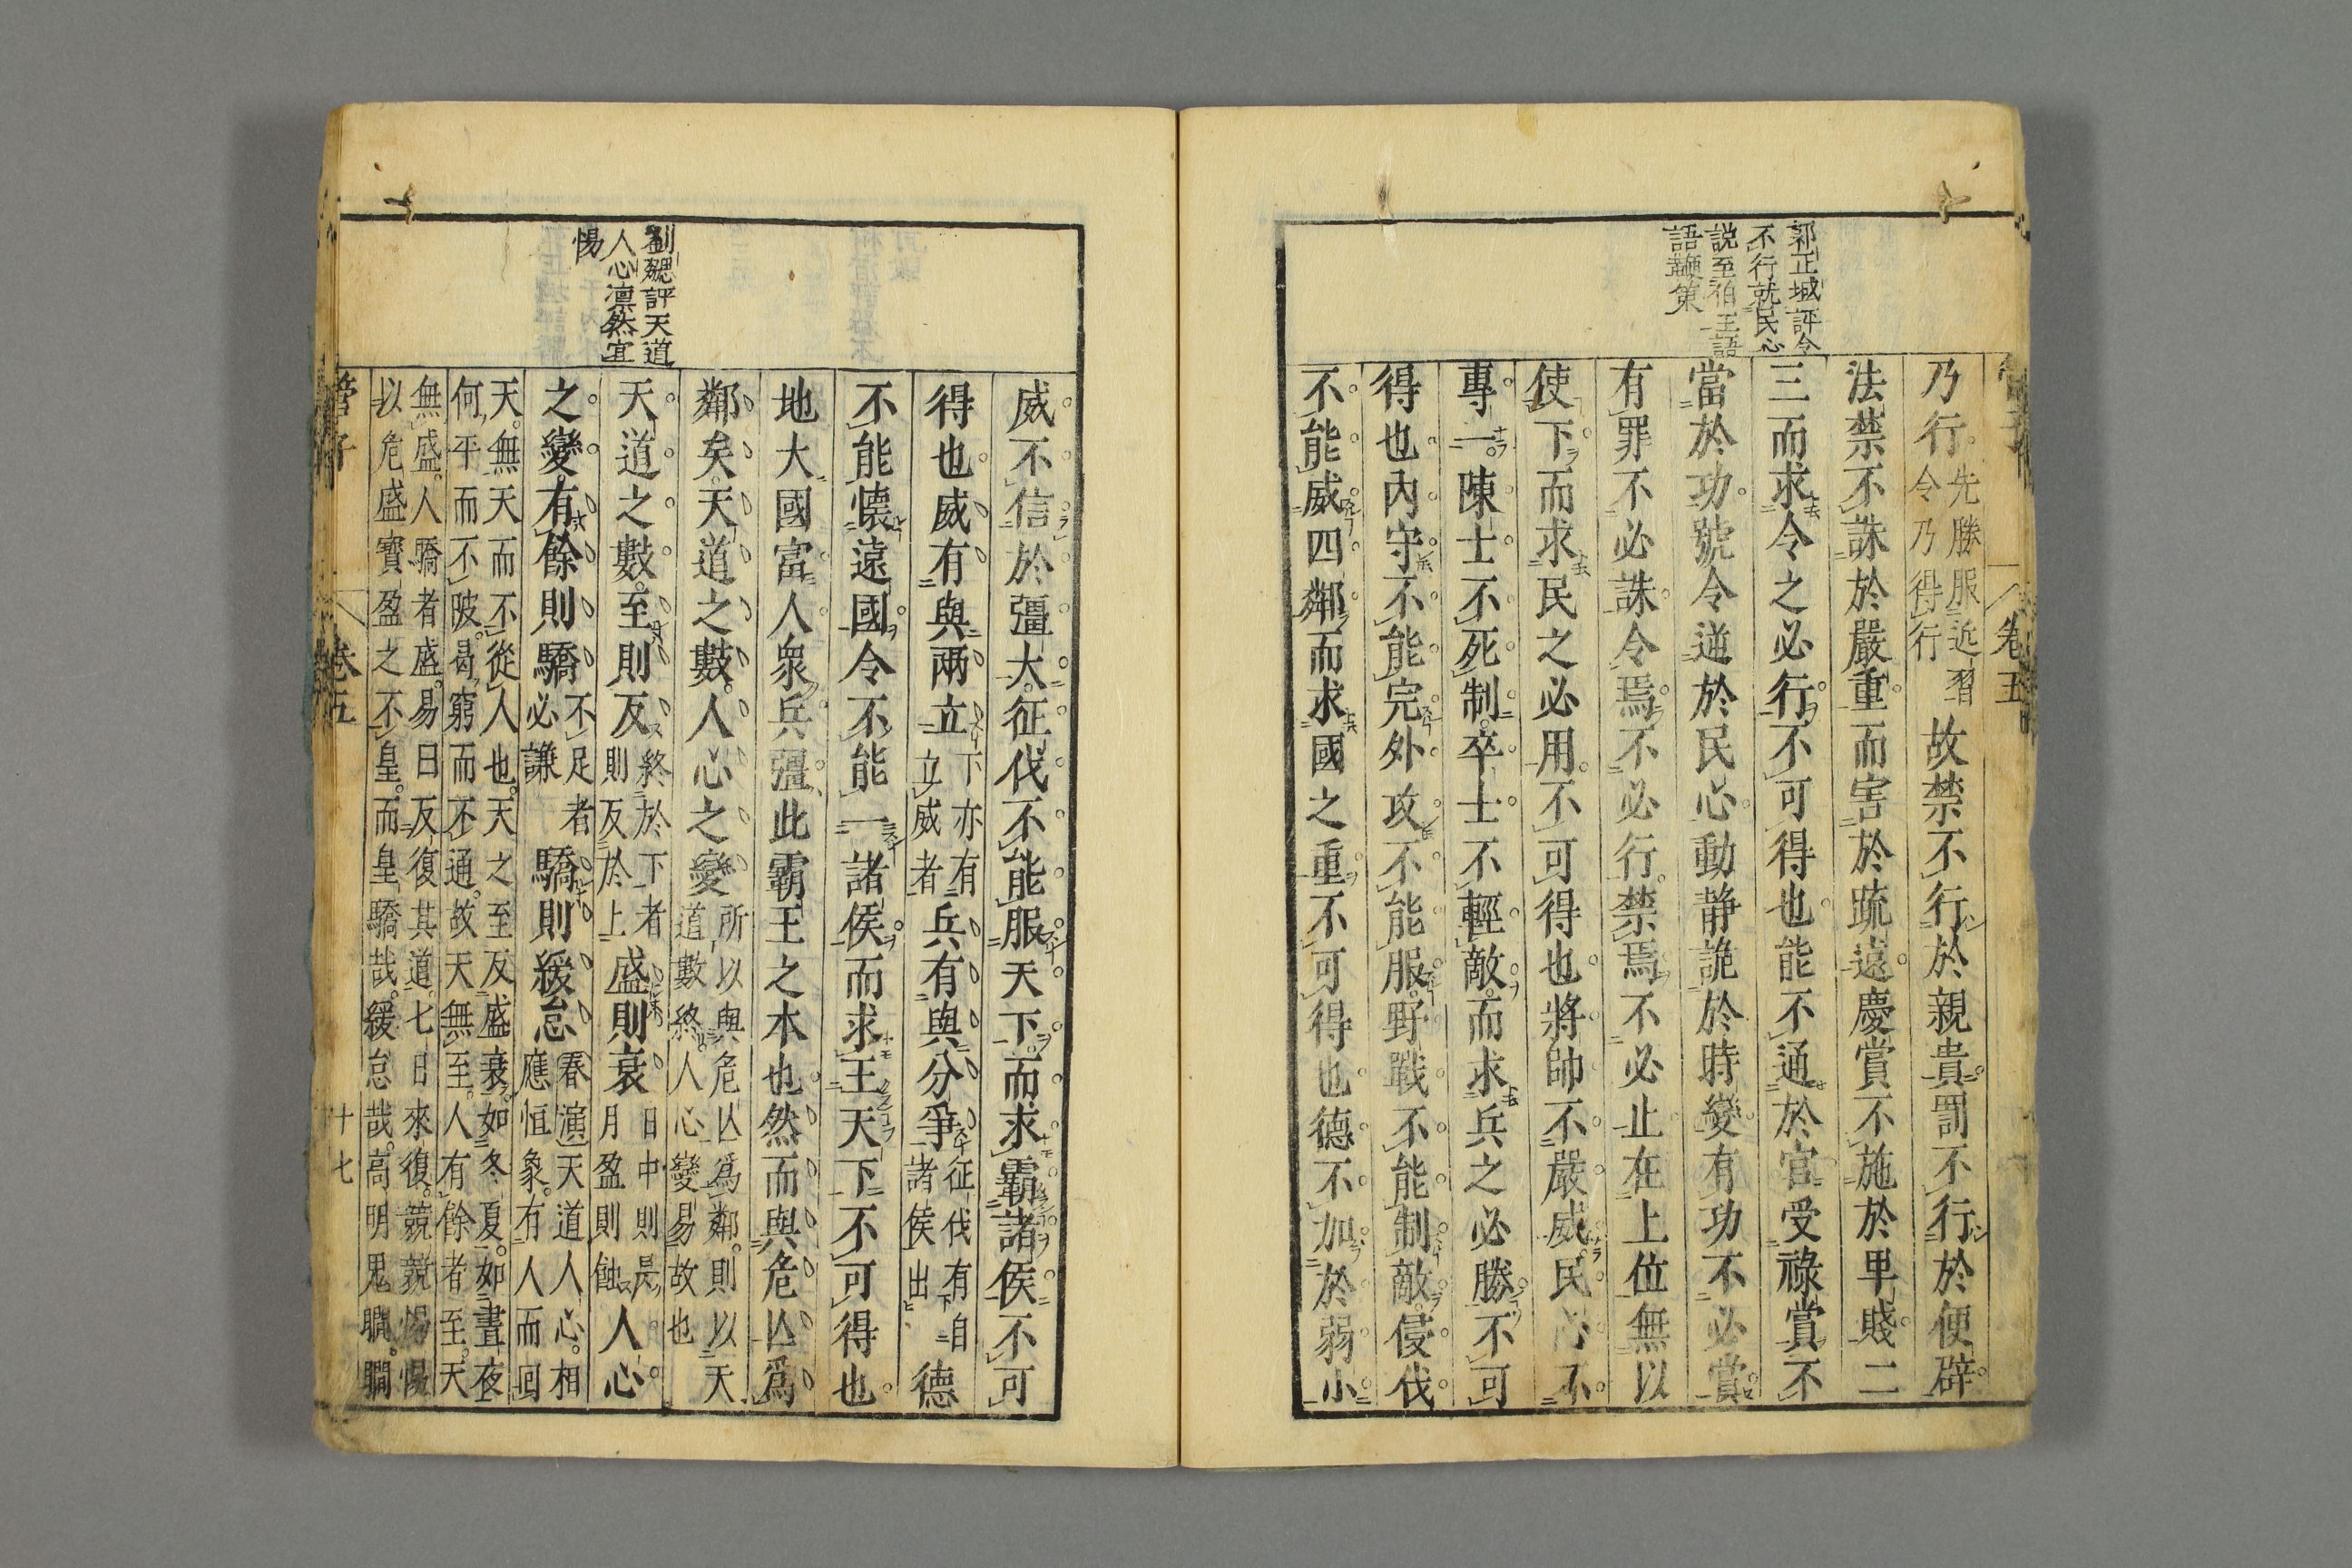 郭正域評令
不行就民心
説至伯王語
語鞭策
乃行先勝服近習令乃得行故禁不行於親貴罰不行於便辟
法禁不誅於嚴重而害於疏遠慶賞不施於卑賤二
三而求令之必行不可得也能不通於官受祿賞不
當於功號令逆於民心動靜詭於時變有功不必賞
有罪不必誅令焉不必行禁焉不必止在上位無以
使下而求民之必用不可得也將帥不嚴威民心不
專一陳士不死制卒士不輕敵而求兵之必勝不可
得也內守不能完外攻不能服野戰不能制敵侵伐
不能威四鄰而求國之重不可得也德不加於弱小
卷五
劉勰評天道
人心凛然宜
惕
威不信於彊大征伐不能服天下而求霸諸侯不可
得也威有與兩立下亦有立威者兵有與分爭征伐有自諸侯出德
不能懷遠國令不能一諸侯而求王天下不可得也
地大國富人衆兵彊此霸王之本也然而與危亾爲
鄰矣天道之數人心之變所以與危亾爲鄰則以天道數終人心變易故也
天道之數至則反終於下者則反於上盛則衰日中則昃月盈則蝕人心
之變有餘則驕不足者必謙驕則緩怠春演天道人心相應恒象有人而囘
天無天而不從人也天之至反盛衰如冬夏如晝夜
何平而不陂曷窮而不通故天無至人有餘者至天
無盛人驕者盛易曰反復其道七日來復兢兢惕惕
以危盛寳盈之不皇而皇驕哉緩怠哉高明鬼瞯瞯
管子
卷五
十七